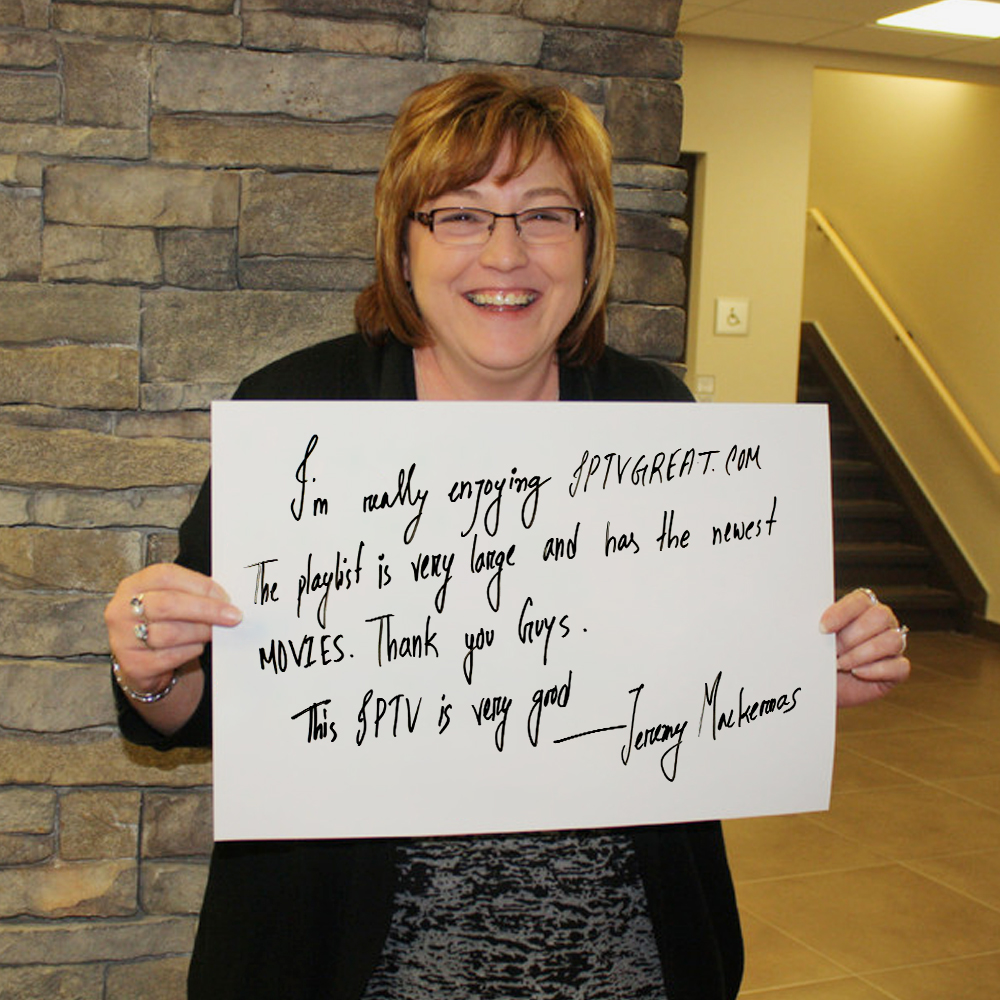 I'm really enjoying IPTVGREAT.COM
The playlist is very large and has the newest
MOVIES. Thank you Guys.
This IPTV is very good
—Jeremy Mackernas